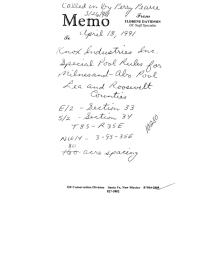 Called in by Perry Pearce
3/26/91
Memo
From
FLORENE DAVIDSON
OC Staff Specialist
To April 18, 1991
Knox Industries Inc.
Special Pool Rules for
Milnesand-Abo Pool
Lea and Roosevelt
Counties
E/2 - Section 33
S/2 - Section 34
T8S-R35E
NW/4 - 3-9S-35E
80
acre spacing
Oil Conservation Division Santa Fe, New Mexico